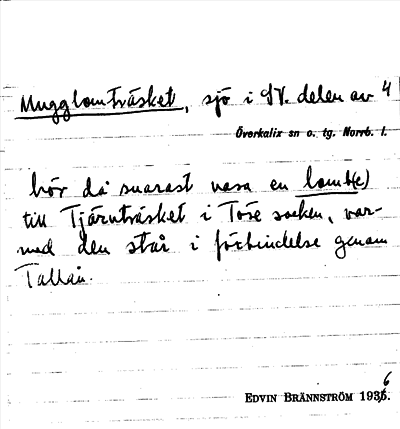 Mugglomträsket, sjö i SV. delen av 4
Överkalix sn o. tg. Norrb. l.
bör då snarast vara en lomb(e)
till Tjärnträsket i Töre socken, var-
med den står i förbindelse genom
Tallån.
EDVIN BRÄNNSTRÖM 1936.